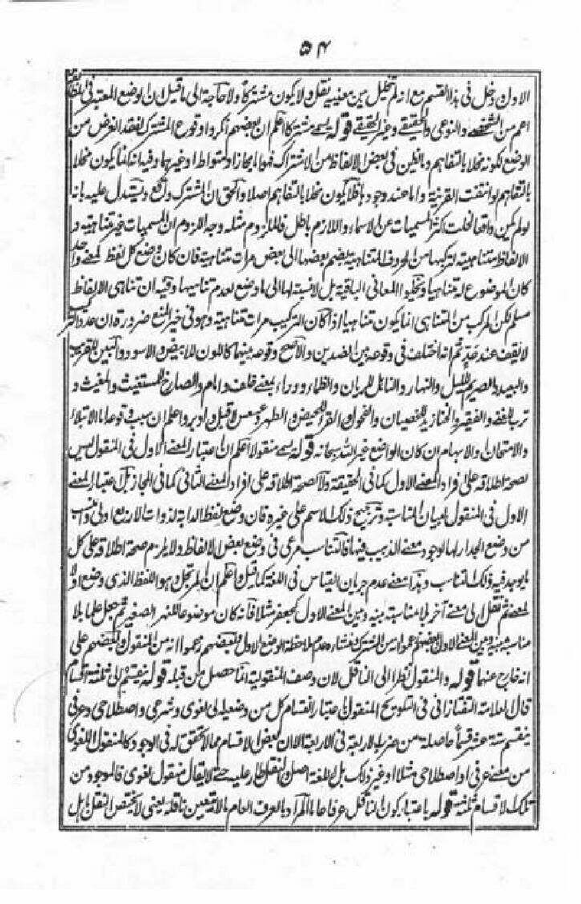 ۵۴
الاول و دخل فى هذا القسم مع انه لم تخلل بين معنييه نقل ولا يكون مشتركا ولا حاجة الى ما قيل ان الوضع المعتبر فى
اعم من الشخصى والنوعى والحقيقى وغير الحقيقى قوله يسمى مشتركا اعلم ان بعضهم انكروا وقوع المشترك لفقد الغرض من
الوضع لكونه مخلا بالتفاهم وما يظن فى بعض الالفاظ من الاشتراك فهو اما مجاز او متواطأ او غيرهما وفيه انه انما يكون مخلا
بالتفاهم لو انتفت القرينة واما عند وجودها فلا يكون مخلا بالتفاهم اصلا والحق ان المشترك واقع ويستدل عليه بانه
لو لم يكن واقعا لخلت اكثر المسميات عن الاسماء واللازم باطل فالملزوم مثله وجه اللزوم ان المسميات غير متناهية و
الالفاظ متناهية لتركبها من الحروف المتناهية بضم بعضها الى بعض مرات متناهية فان كان وضع كل لفظ لمعنى واحد
كان الموضوع له متناهيا ويخلو المعانى الباقية بل لا نسبة لها الى ما وضع له لعدم تناهيها وفيه ان تناهى الالفاظ
مسلم لكن المركب من المتناهى انما يكون متناهيا اذا كان التركيب مرات متناهية وهو فى حيز المنع ضرورة ان عدد التركيب
لا يقف عند حد ثم انه اختلف فى وقوعه بين الضدين والاصح وقوعه بينهما كالجون للابيض والاسود والبين للقريب
والبعيد والصريم لليل والنهار والناهل للريان والظمآن ووراء بمعنى خلف وامام والصارخ للمستغيث والمغيث و
للخصيان والفحول والقرء للحيض والطهر وعسعس لاقبل وادبر واعلم ان سبب وقوعه اما الابتلاء
والامتحان والابهام ان كان الواضع غير الله سبحانه قوله يسمى منقولا اعلم ان اعتبار المعنى الاول فى المنقول ليس
لصحة اطلاقه على افراد المعنى الاول كما فى الحقيقة ولا لصحة اطلاقه على افراد المعنى الثانى كما فى المجاز بل اعتبار المعنى
الاول فى المنقول لبيان المناسبة وترجيح ذلك الاسم على غيره فان وضع لفظ الدابة لذوات الاربع اولى وانسب
من وضع الجدار لها لوجود معنى الدبيب فيها فالتناسب مرعى فى وضع بعض الالفاظ ولا يلزم صحة اطلاقه على كل
ما يوجد فيه ذلك التناسب وهذا معنى عدم جريان القياس فى اللغة كما قيل واعلم ان المرتجل هو اللفظ الذى وضع اولا
لمعنى ثم نقل الى معنى آخر لا لمناسبة بينه وبين المعنى الاول كجعفر مثلا فانه كان موضوعا للنهر الصغير ثم جعل علما بلا
مناسبة بينه وبين المعنى الاول فبعضهم عدوا من المشترك لعدم ملاحظة الوضع الاول وبعضهم انه من المنقول وبعضهم على
انه خارج عنها قوله والمنقول نظرا الى الناقل لان وصف المنقولية انما حصل من قبله قوله ينقسم الى ثلثة اقسام
قال العلامة التفتازانى فى التلويح المنقول باعتبار انقسام كل من وضعيه الى لغوى وشرعى واصطلاحى وعرفى
ينقسم ستة عشر قسما حاصلة من ضرب الاربعة فى الاربعة الا ان بعض الاقسام مما لا تحقق له فى الوجود كالمنقول اللغوى
من معنى عرفى او اصطلاحى مثلا او غير ذلك بل اللغة اصل والنقل طار عليه حتى لا يقال منقول لغوى فالموجود من
تلك الاقسام ثلثة قوله باعتبار كون الناقل عرفا عاما المراد بالعرف العام ما لا يتعين ناقله يعنى لا يختص النقل باهل